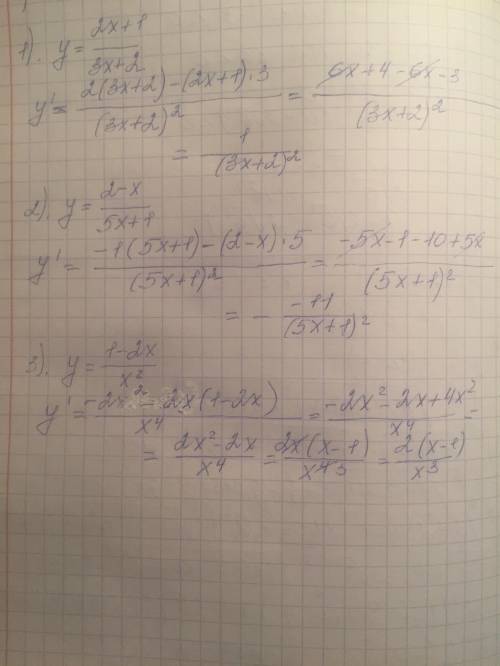 1). y = (2x+1)/(3x+2)
y' = (2(3x+2)-(2x+1)·3)/(3x+2)² = (6x+4-6x-3)/(3x+2)²
= 1/(3x+2)²
2). y = (2-x)/(5x+1)
y' = (-1(5x+1)-(2-x)·5)/(5x+1)² = (-5x-1-10+5x)/(5x+1)²
= - (-11)/(5x+1)²
3). y = (1-2x)/x²
y' = (-2x²-2x(1-2x))/x⁴ = (-2x²-2x+4x²)/x⁴ =
= (2x²-2x)/x⁴ = (2x(x-1))/x⁴ ³ = (2(x-1))/x³